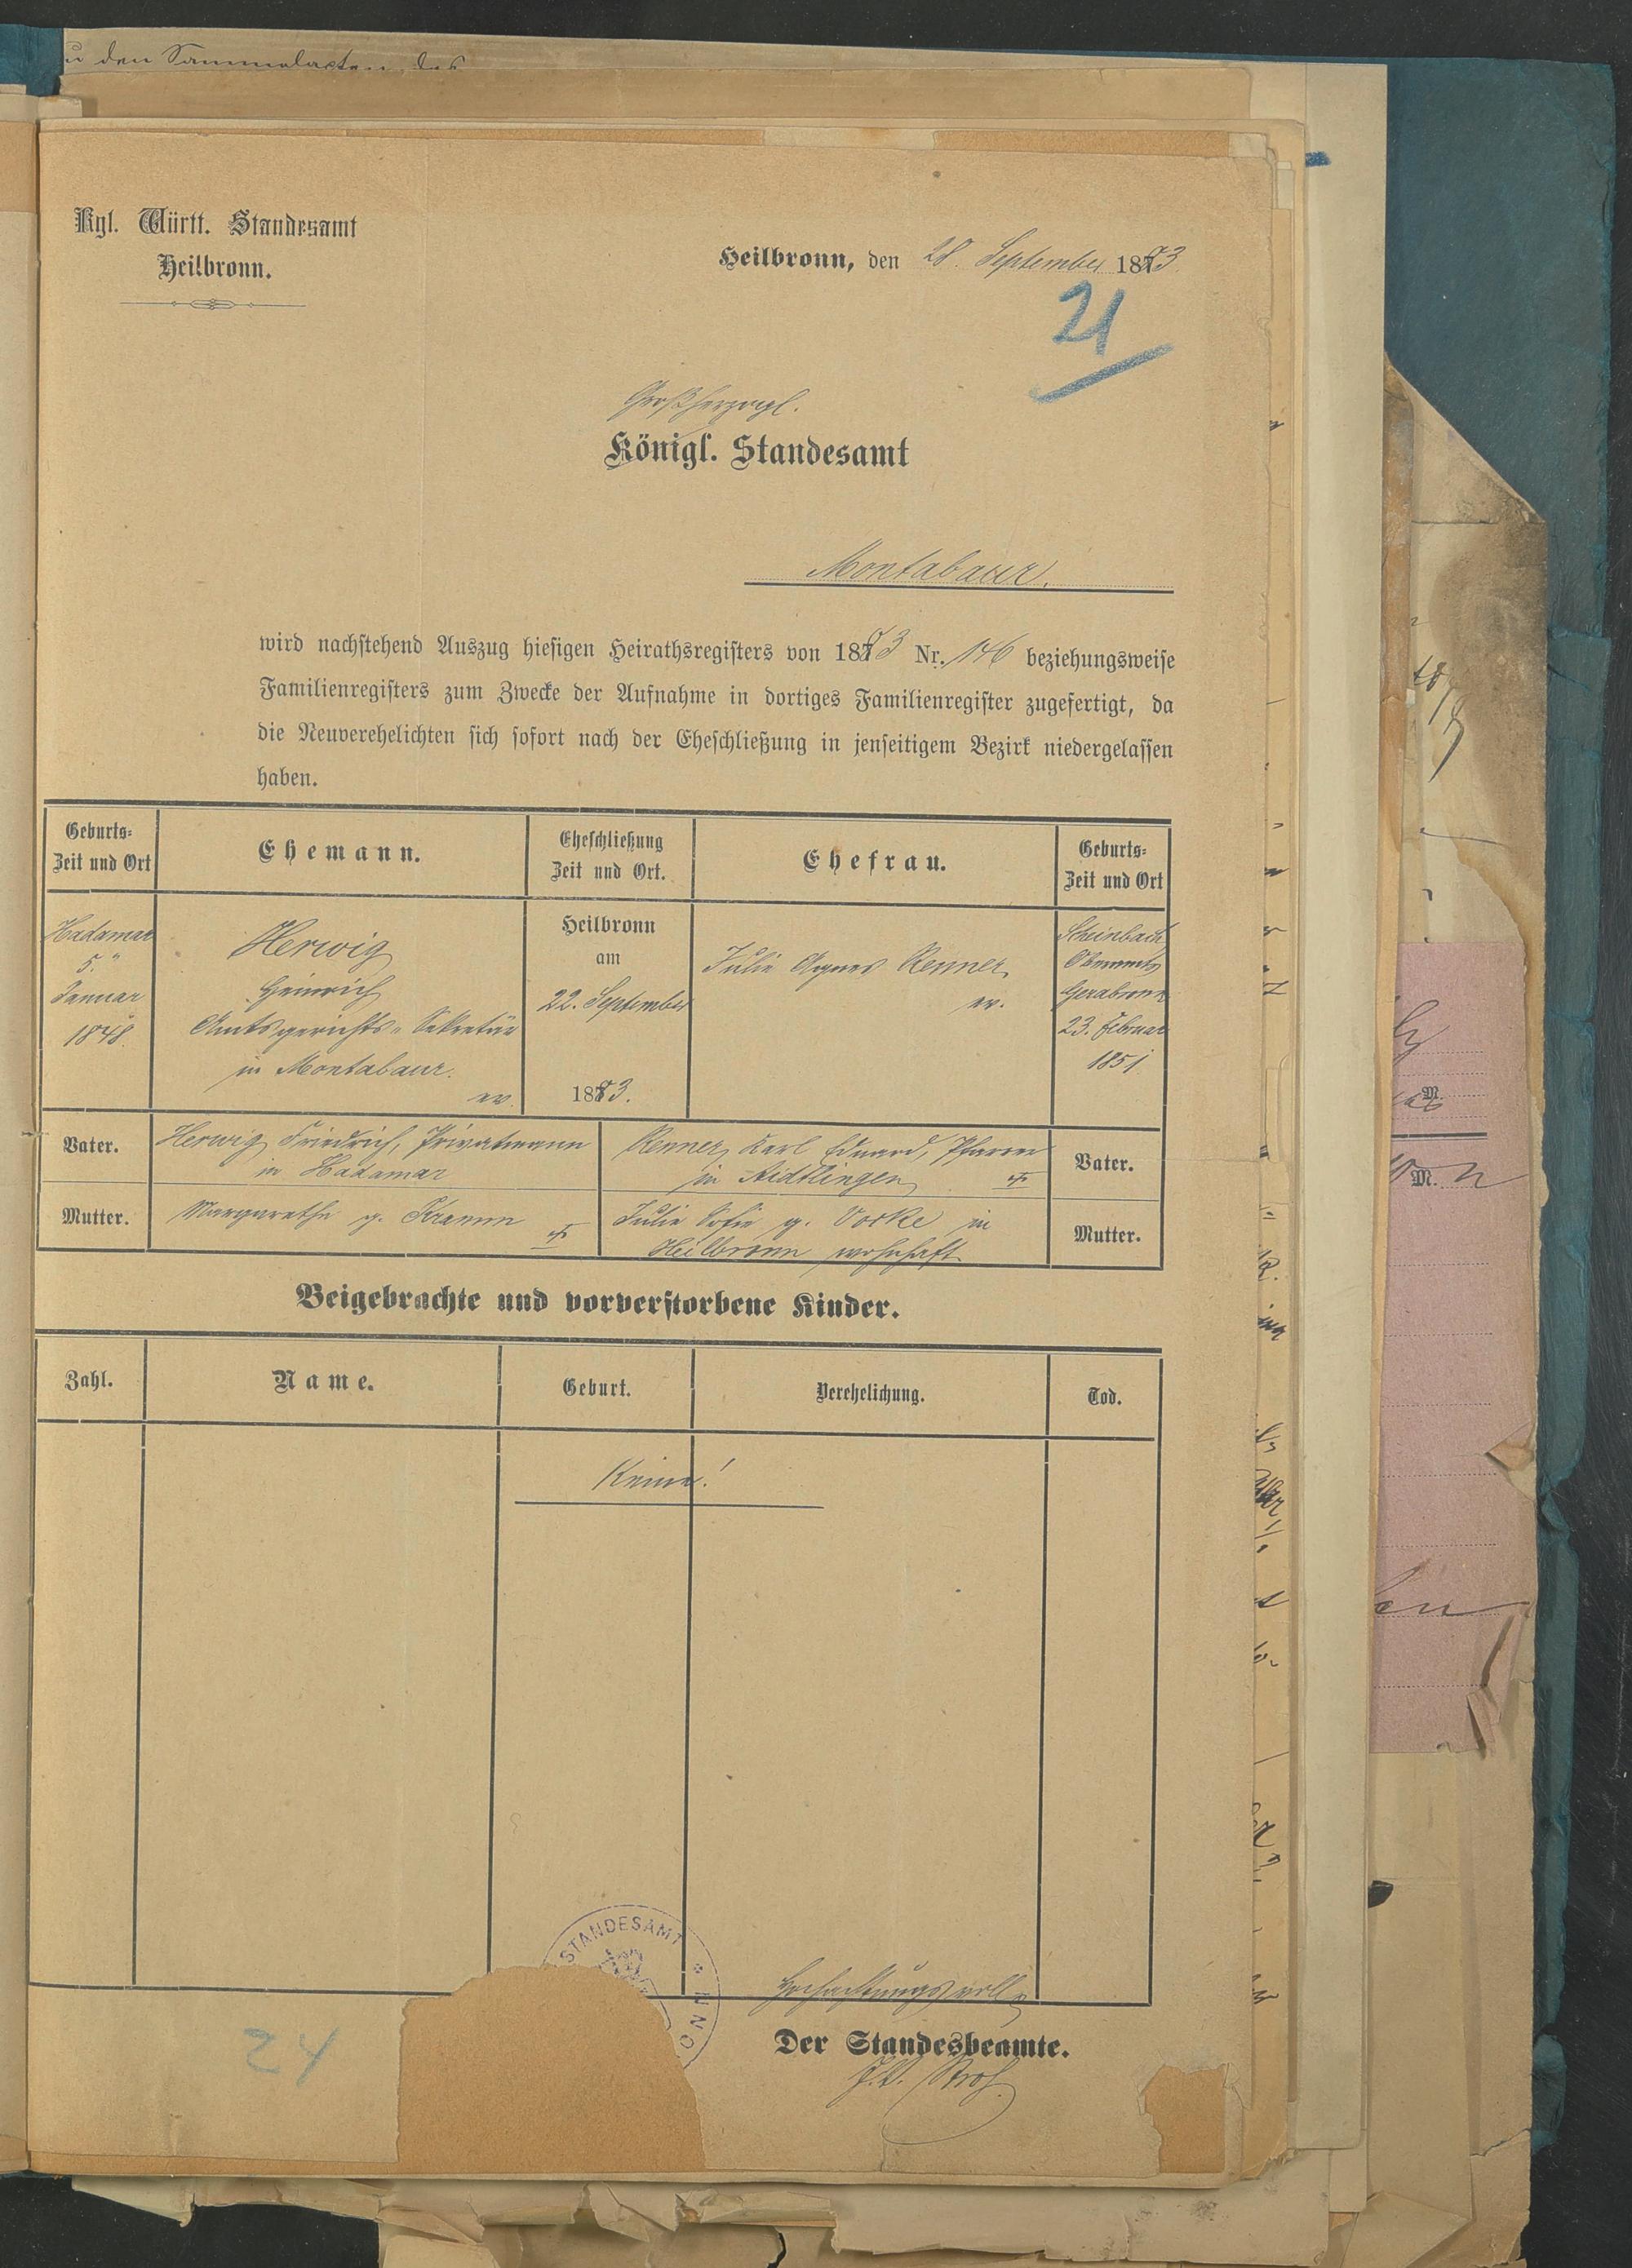 den Sammelacten des
Kgl. Württ. Standesamt
Heilbronn.
Heilbronn, den 28. September 1883
21
Großherzogl.
Königl. Standesamt
Montabaur.
wird nachstehend Auszug hiesigen Heirathsregisters von 1883 Nr. 146 beziehungsweise
Familienregisters zum Zwecke der Aufnahme in dortiges Familienregister zugefertigt, da
die Neuverehelichten sich sofort nach der Eheschließung in jenseitigem Bezirk niedergelassen
haben.
Geburts-
Zeit und Ort
Ehemann.
Eheschließung
Zeit und Ort.
Ehefrau.
Geburts-
Zeit und Ort
Hadamar
5.
Januar
1848.
Herwig
Heinrich
Amtsgerichts-Sekretär
in Montabaur.
ev.
Heilbronn
am
22. September
1883.
Julie Agnes Renner
ev.
Steinbach
Oberamts
Gerabronn
23. Februar
1851
Vater.
Herwig, Friedrich, Privatmann
in Hadamar
Renner, Karl Eduard, Pfarrer
in
Vater.
Mutter.
Margarethe g. Kramm
Julie Sofie g. in
Heilbronn wohnhaft.
Mutter.
Beigebrachte und vorverstorbene Kinder.
Zahl.
Name.
Geburt.
Verehelichung.
Tod.
Keine!
STANDESAMT
Hochachtungsvoll
Der Standesbeamte.
24